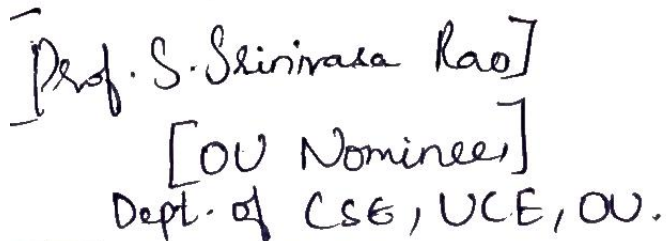 [Prof. S. Srinivasa Rao]
[OU Nominee]
Dept. of CSE, UCE, OU.